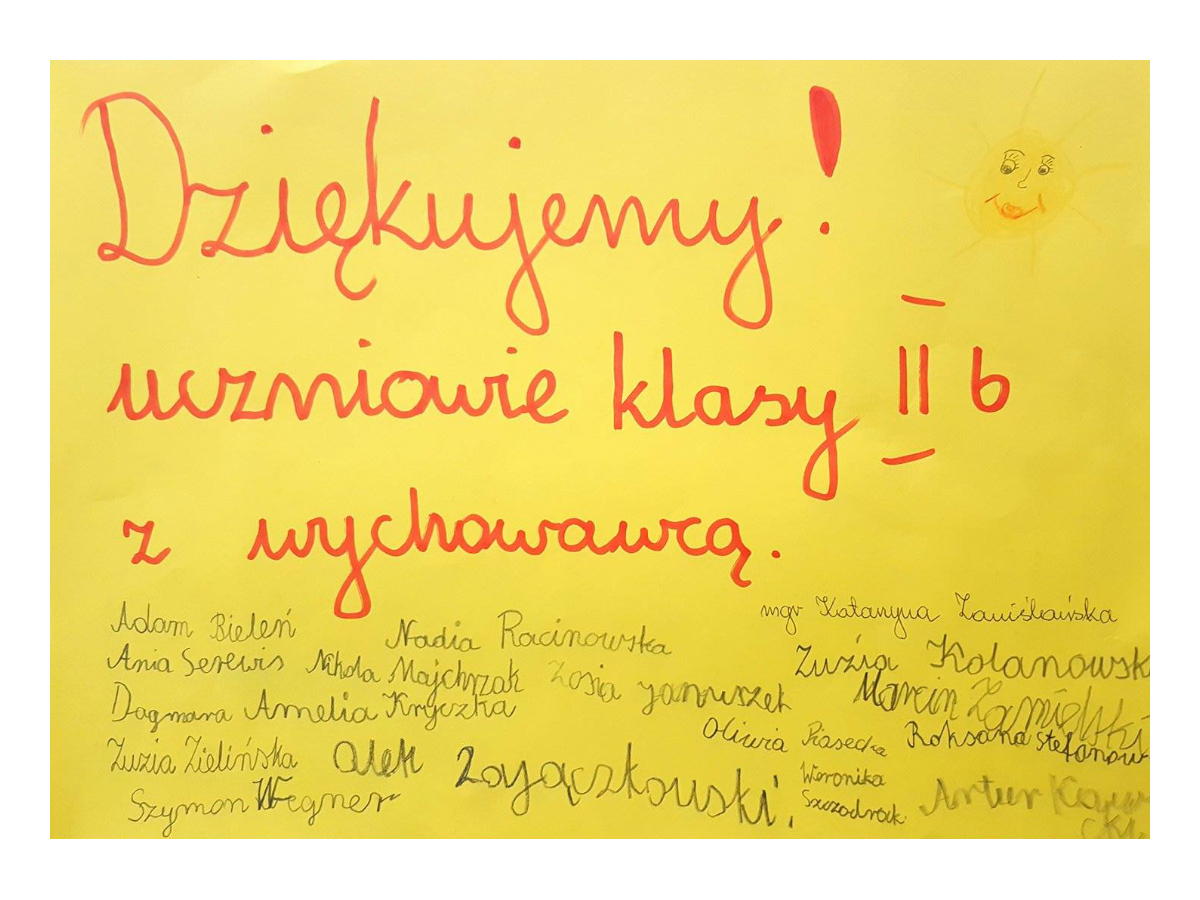 Dziękujemy!
uczniowie klasy II b
z wychowawcą.
mgr Katarzyna
Adam Bieleń
Nadia Racinowska
Ania Serewis
Nikola Majchrzak
Zosia Januszek
Zuzia Kolanowsk
Marcin
Dagmara
Amelia Kryczka
Oliwia Piasecka
Roksana Stefanow
Zuzia Zielińska
Olek Zajączkowski.
Weronika
Szczodrak
Szymon Wegner
Artur